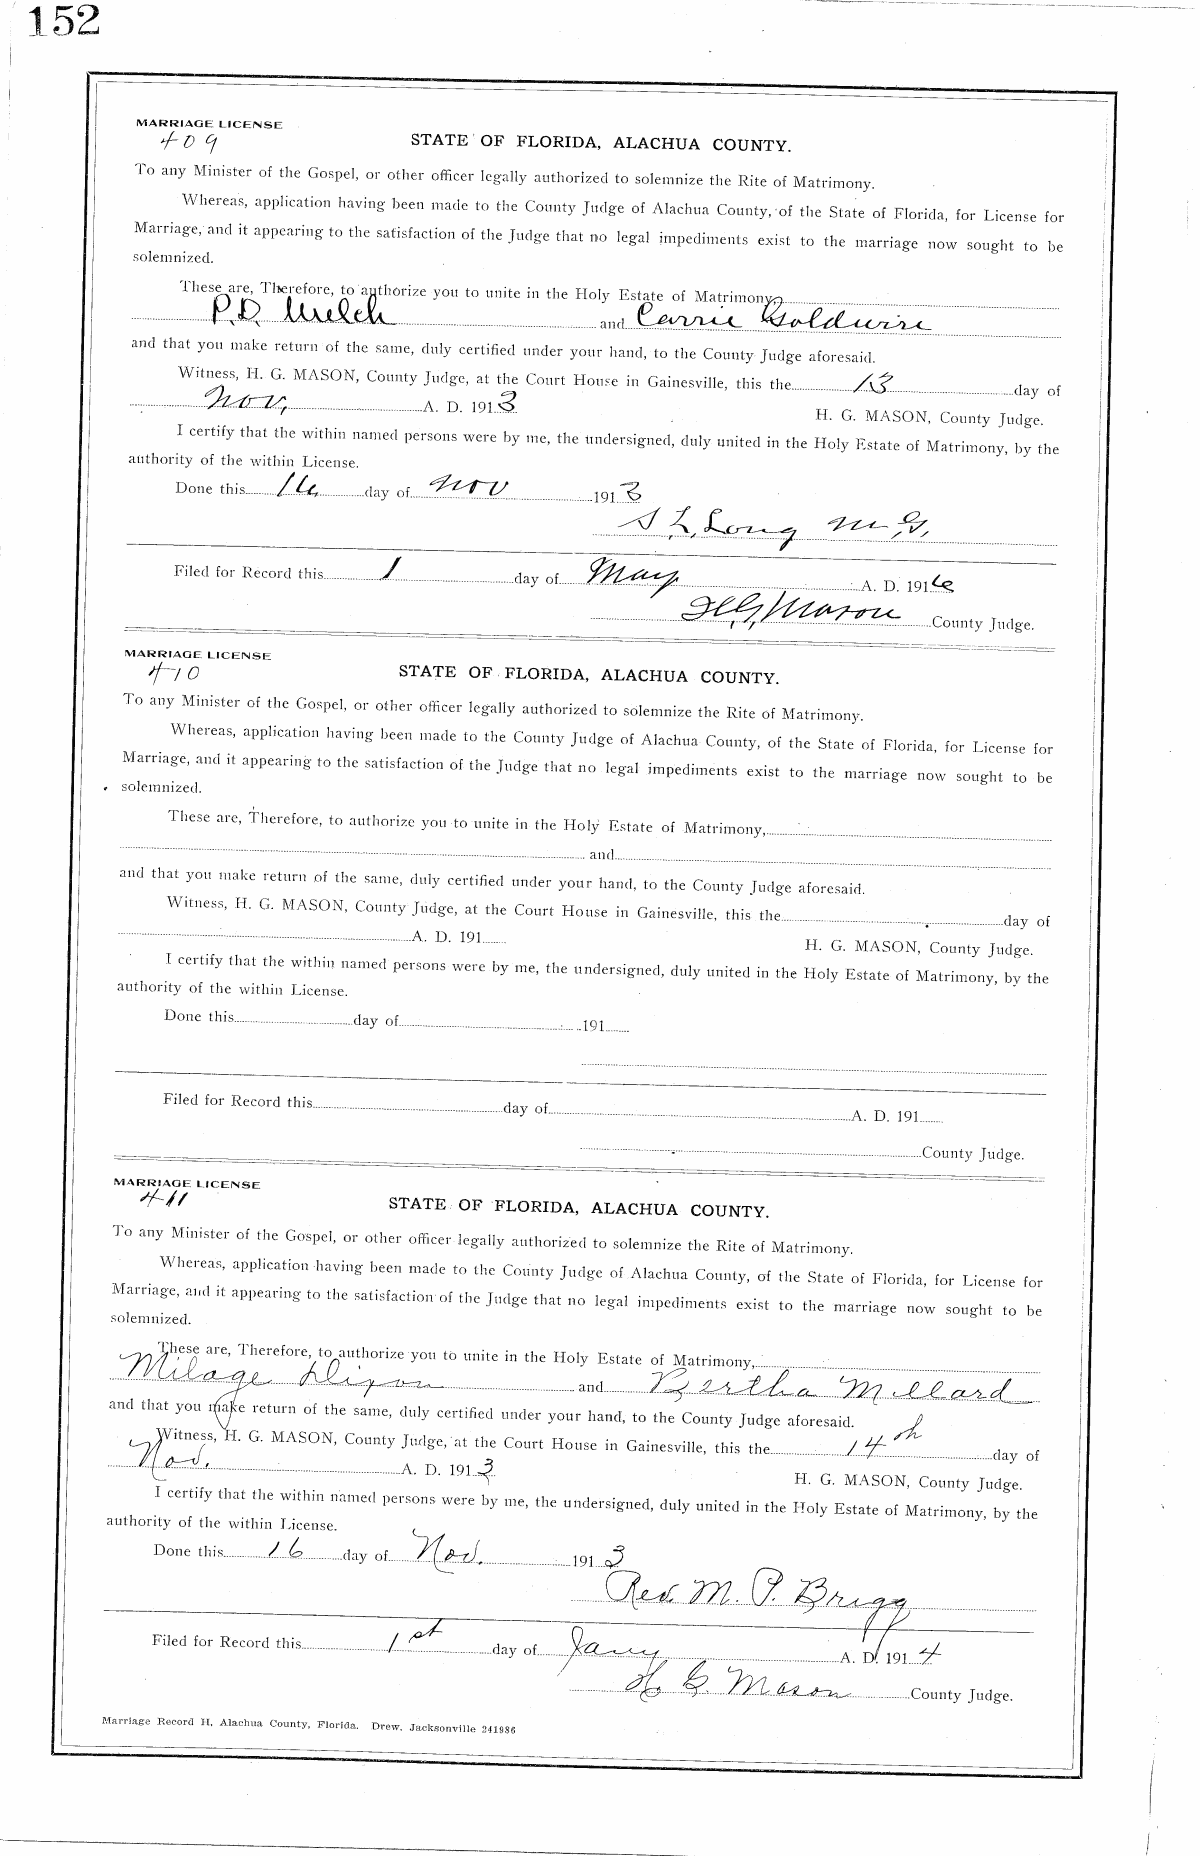 152
MARRIAGE LICENSE
409
STATE OF FLORIDA, ALACHUA COUNTY.
To any Minister of the Gospel, or other officer legally authorized to solemnize the Rite of Matrimony.
Whereas, application having been made to the County Judge of Alachua County, of the State of Florida, for License for
Marriage, and it appearing to the satisfaction of the Judge that no legal impediments exist to the marriage now sought to be
solemnized.
These are, Therefore, to authorize you to unite in the Holy Estate of Matrimony,
P.D. Welch and Carrie Goldwire
and that you make return of the same, duly certified under your hand, to the County Judge aforesaid.
Witness, H. G. MASON, County Judge, at the Court House in Gainesville, this the 13 day of
Nov, A. D. 1913 H. G. MASON, County Judge.
I certify that the within named persons were by me, the undersigned, duly united in the Holy Estate of Matrimony, by the
authority of the within License.
Done this 16 day of Nov 1913
S. L. Long M. G.
Filed for Record this 1 day of May A. D. 1916
H.G. Mason County Judge.
MARRIAGE LICENSE
410
STATE OF FLORIDA, ALACHUA COUNTY.
To any Minister of the Gospel, or other officer legally authorized to solemnize the Rite of Matrimony.
Whereas, application having been made to the County Judge of Alachua County, of the State of Florida, for License for
Marriage, and it appearing to the satisfaction of the Judge that no legal impediments exist to the marriage now sought to be
solemnized.
These are, Therefore, to authorize you to unite in the Holy Estate of Matrimony,
and
and that you make return of the same, duly certified under your hand, to the County Judge aforesaid.
Witness, H. G. MASON, County Judge, at the Court House in Gainesville, this the day of
A. D. 191 H. G. MASON, County Judge.
I certify that the within named persons were by me, the undersigned, duly united in the Holy Estate of Matrimony, by the
authority of the within License.
Done this day of 191
Filed for Record this day of A. D. 191
County Judge.
MARRIAGE LICENSE
411
STATE OF FLORIDA, ALACHUA COUNTY.
To any Minister of the Gospel, or other officer legally authorized to solemnize the Rite of Matrimony.
Whereas, application having been made to the County Judge of Alachua County, of the State of Florida, for License for
Marriage, and it appearing to the satisfaction of the Judge that no legal impediments exist to the marriage now sought to be
solemnized.
These are, Therefore, to authorize you to unite in the Holy Estate of Matrimony,
Milage Dixon and Bertha Millard
and that you make return of the same, duly certified under your hand, to the County Judge aforesaid.
Witness, H. G. MASON, County Judge, at the Court House in Gainesville, this the 14th day of
Nov. A. D. 1913 H. G. MASON, County Judge.
I certify that the within named persons were by me, the undersigned, duly united in the Holy Estate of Matrimony, by the
authority of the within License.
Done this 16 day of Nov. 1913
Rev. M. P. Brigg
Filed for Record this 1st day of Jany A. D. 1914
H. G. Mason County Judge.
Marriage Record H, Alachua County, Florida. Drew, Jacksonville 241986